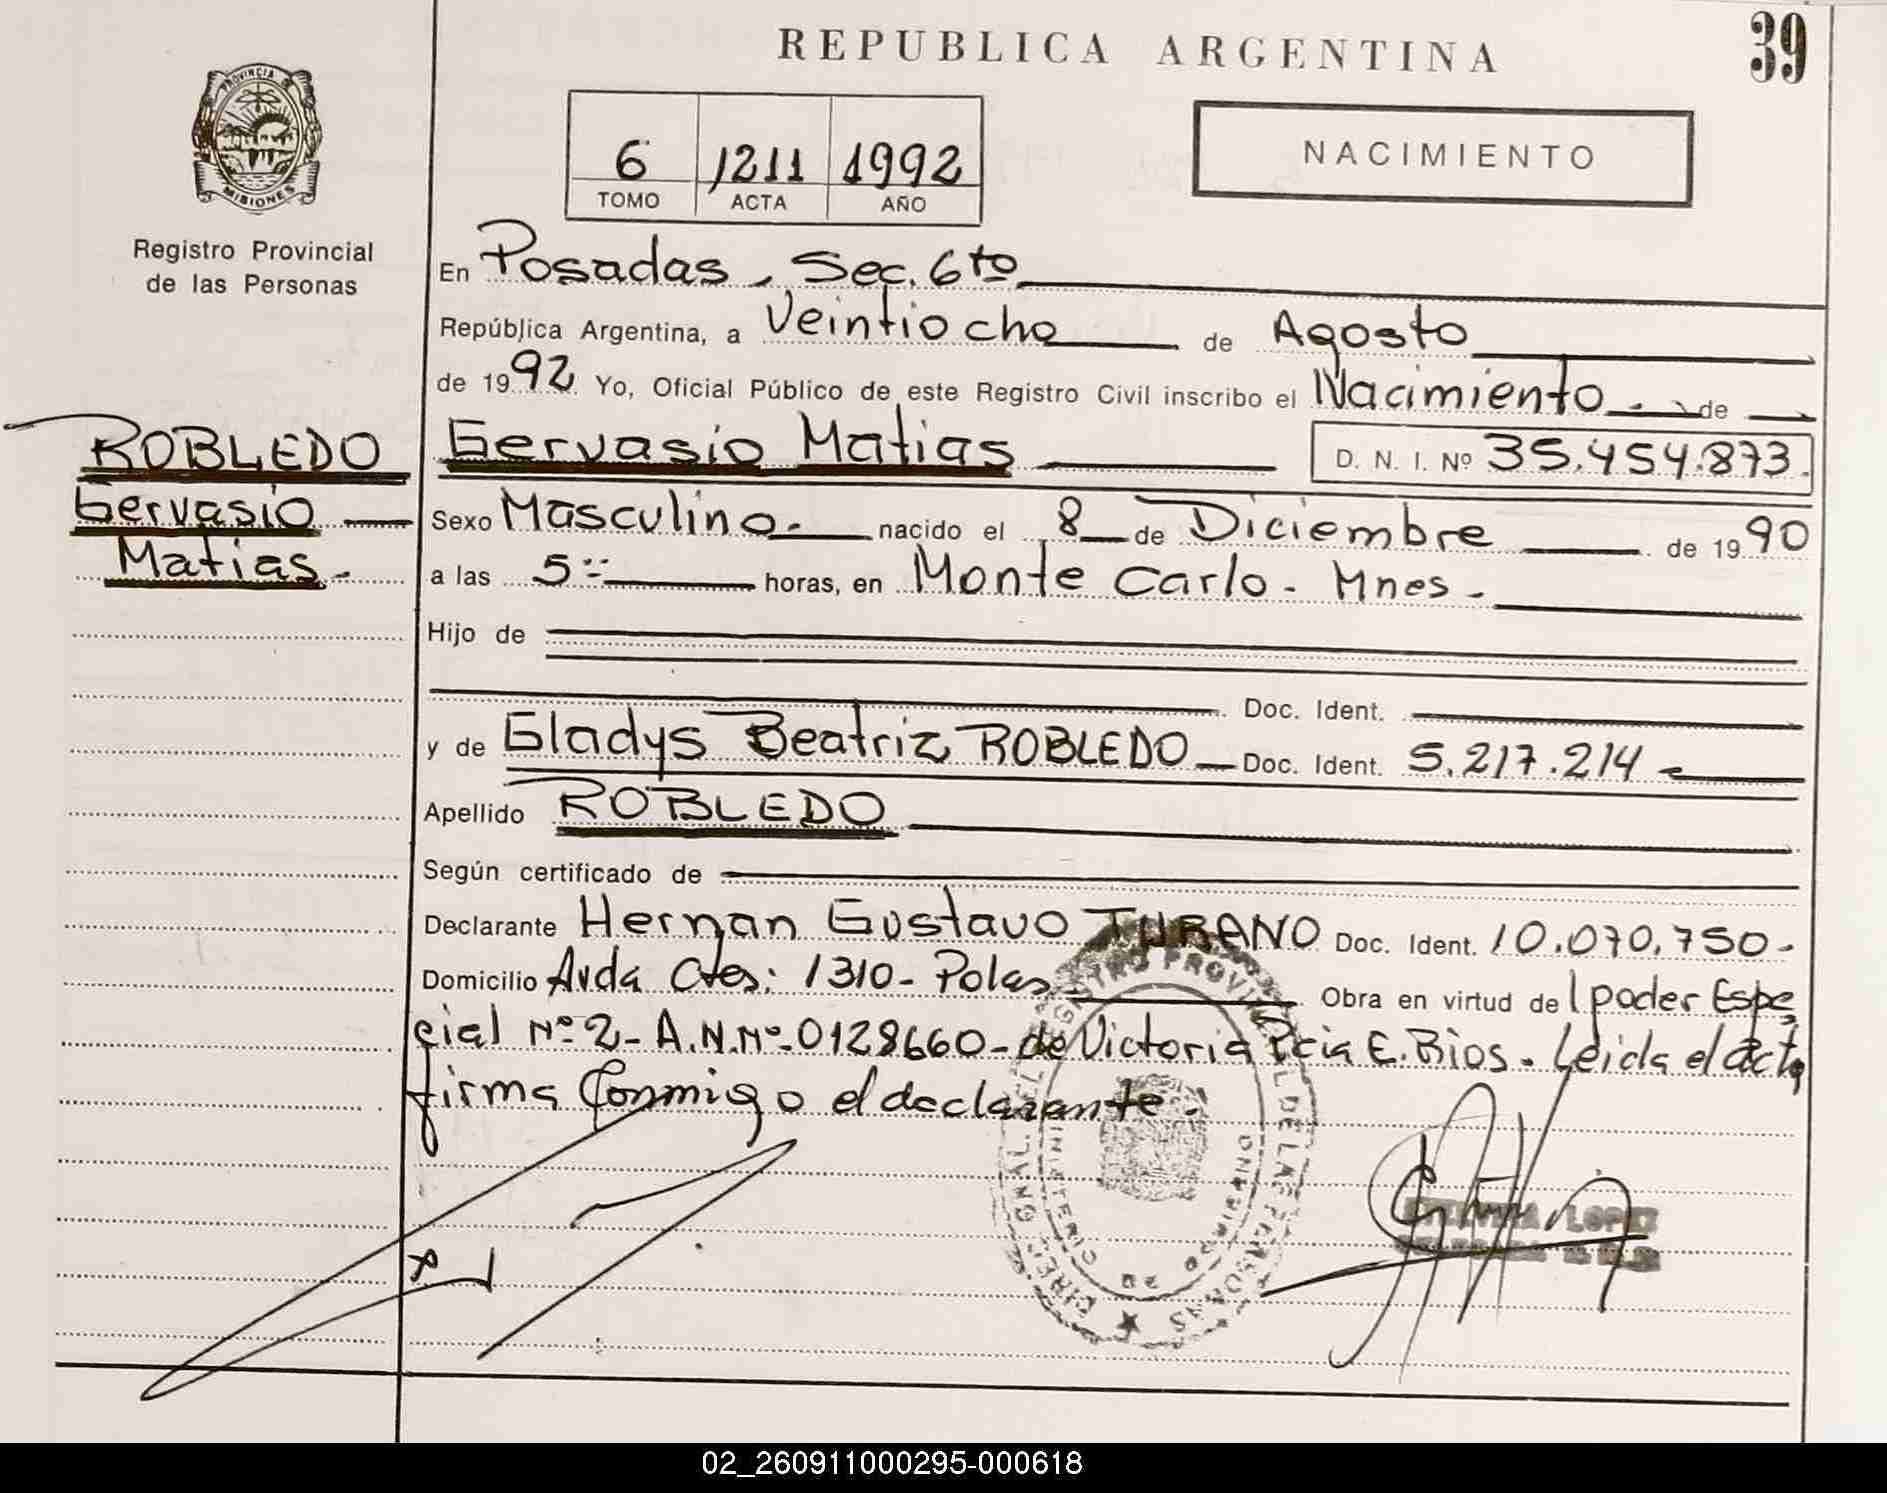 REPUBLICA ARGENTINA
39
PROVINCIA
MISIONES
Registro Provincial
de las Personas
6 1211 1992
TOMO ACTA AÑO
NACIMIENTO
En Posadas, Sec. 6to
República Argentina, a Veintiocho de Agosto
de 1992 Yo, Oficial Público de este Registro Civil inscribo el Nacimiento de
ROBLEDO
Gervasio
Matias.-
Gervasio Matias D. N. I. Nº 35.454.873.
Sexo Masculino.- nacido el 8 de Diciembre de 1990
a las 5 horas, en Monte Carlo - Mnes -
Hijo de
Doc. Ident.
y de Gladys Beatriz ROBLEDO Doc. Ident. 5.217.214
Apellido ROBLEDO
Según certificado de
Declarante Hernan Gustavo TURANO Doc. Ident. 10.070.750-
Domicilio Avda Ctes: 1310- Obra en virtud de 1 poder Espe
cial Nº 2- A.N.Nº-0128660- de Victoria Pcia E. Rios. Leida el acta
firma Conmigo el declarante.
LOPEZ
02_260911000295-000618